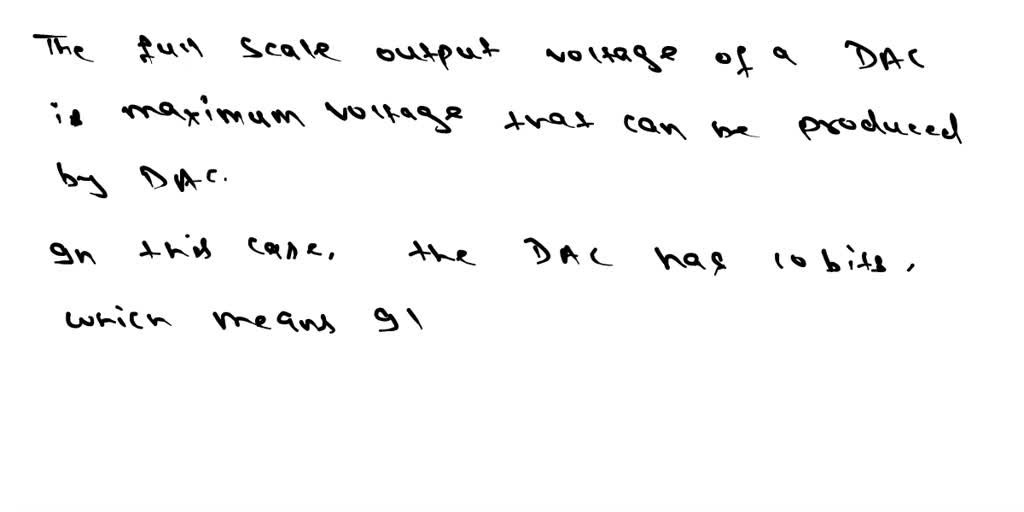 The full scale output voltage of a DAC
is maximum voltage that can be produced
by DAC.
In this case, the DAC has 10 bits,
which means